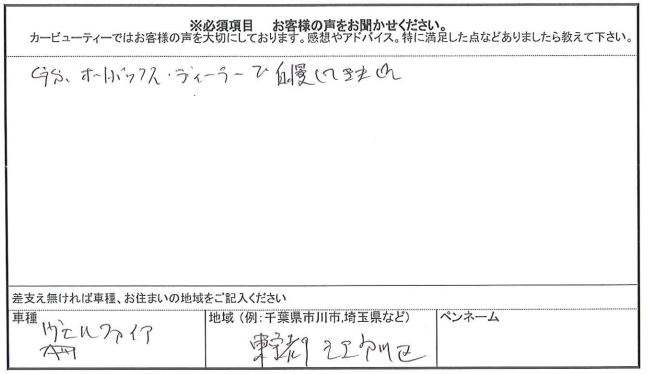 ※必須項目　お客様の声をお聞かせください。
カービューティーではお客様の声を大切にしております。感想やアドバイス。特に満足した点などありましたら教えて下さい。
GS、オートバックス・ディーラーで自慢してきました
差支え無ければ車種、お住まいの地域をご記入ください
車種
ヴェルファイア
地域（例：千葉県市川市,埼玉県など）
東京都江戸川区
ペンネーム